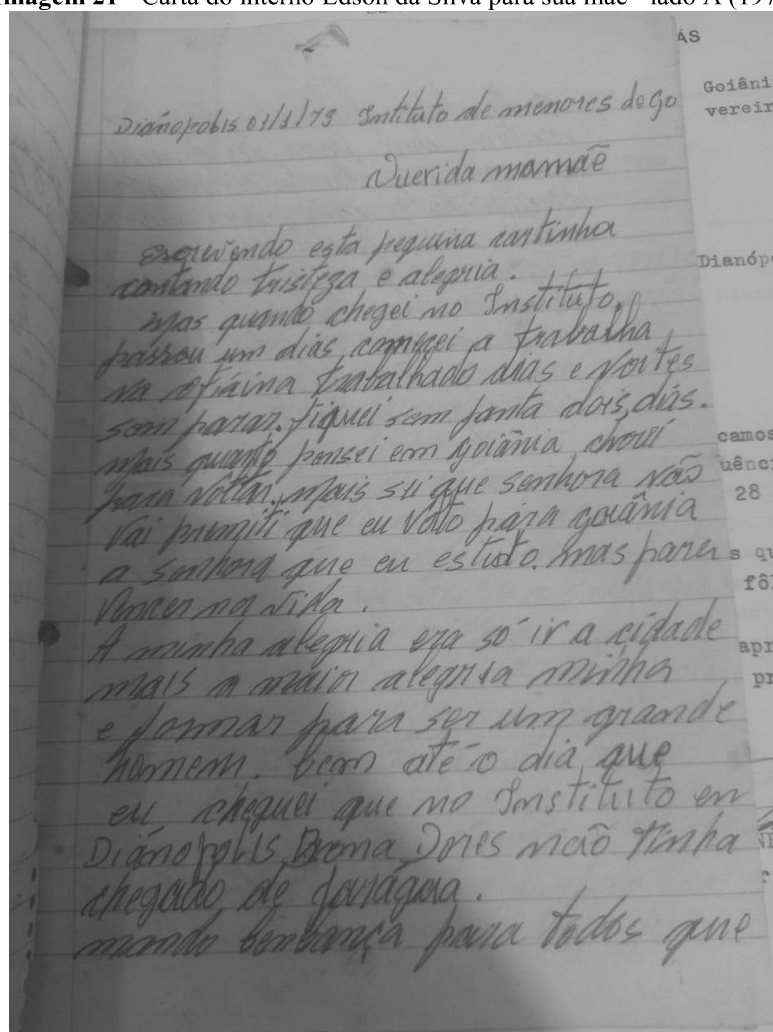 Imagem 21 - Carta do interno Edson da Silva para sua mãe - lado A (197
ÁS
Goiâni
vereir
Dianópolis 01/1/73 Intituto de menores de Go
Querida mamãe
escrevendo esta pequina cartinha
contando tristeza e alegria.
Dianóp
mas quando chegei no Instituto,
passou um dias, começei a trabalha
na oficina trabalhado dias e noites
som parar. fiquei sem janta dois dias.
mais quanto pensei em goiânia chorei
camos
para voltar, mais sei que senhora não
uênc
28
vai primiti que eu volto para goiânia
a senhora que eu estudo. mas para
s qu
fôl
vencer na vida.
A minha alegria era só ir a cidade
apr
mais a maior alegria minha
pr
e formar para ser um grande
homem. bem até o dia que
eu cheguei que no Instituto en
Dianopolis Dona Dores não tinha
chegado de
mando bembança para todos que